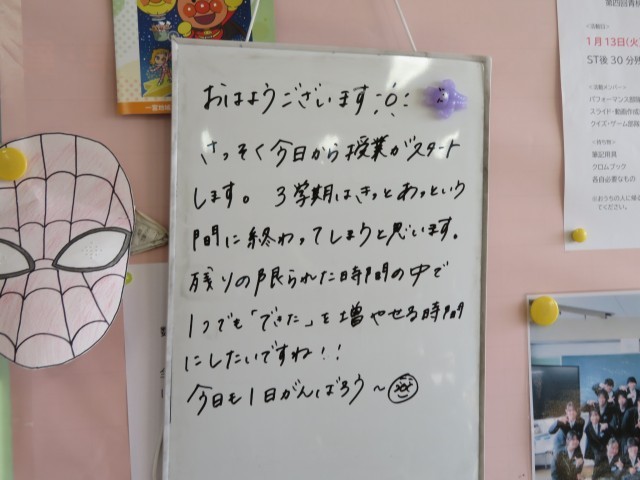 おはようございます
さっそく今日から授業がスタート
します。 3学期はきっとあっという
間に終わってしまうと思います。
残りの限られた時間の中で
1つでも「できた」を増やせる時間
にしたいですね!!
今日も1日がんばろう〜
1月13日(火)
ST後30分
＜活動メンバー＞
パフォーマンス部隊
スライド・動画作成
クイズ・ゲーム部隊
＜持ち物＞
筆記用具
クロムブック
各自必要なもの
てください。